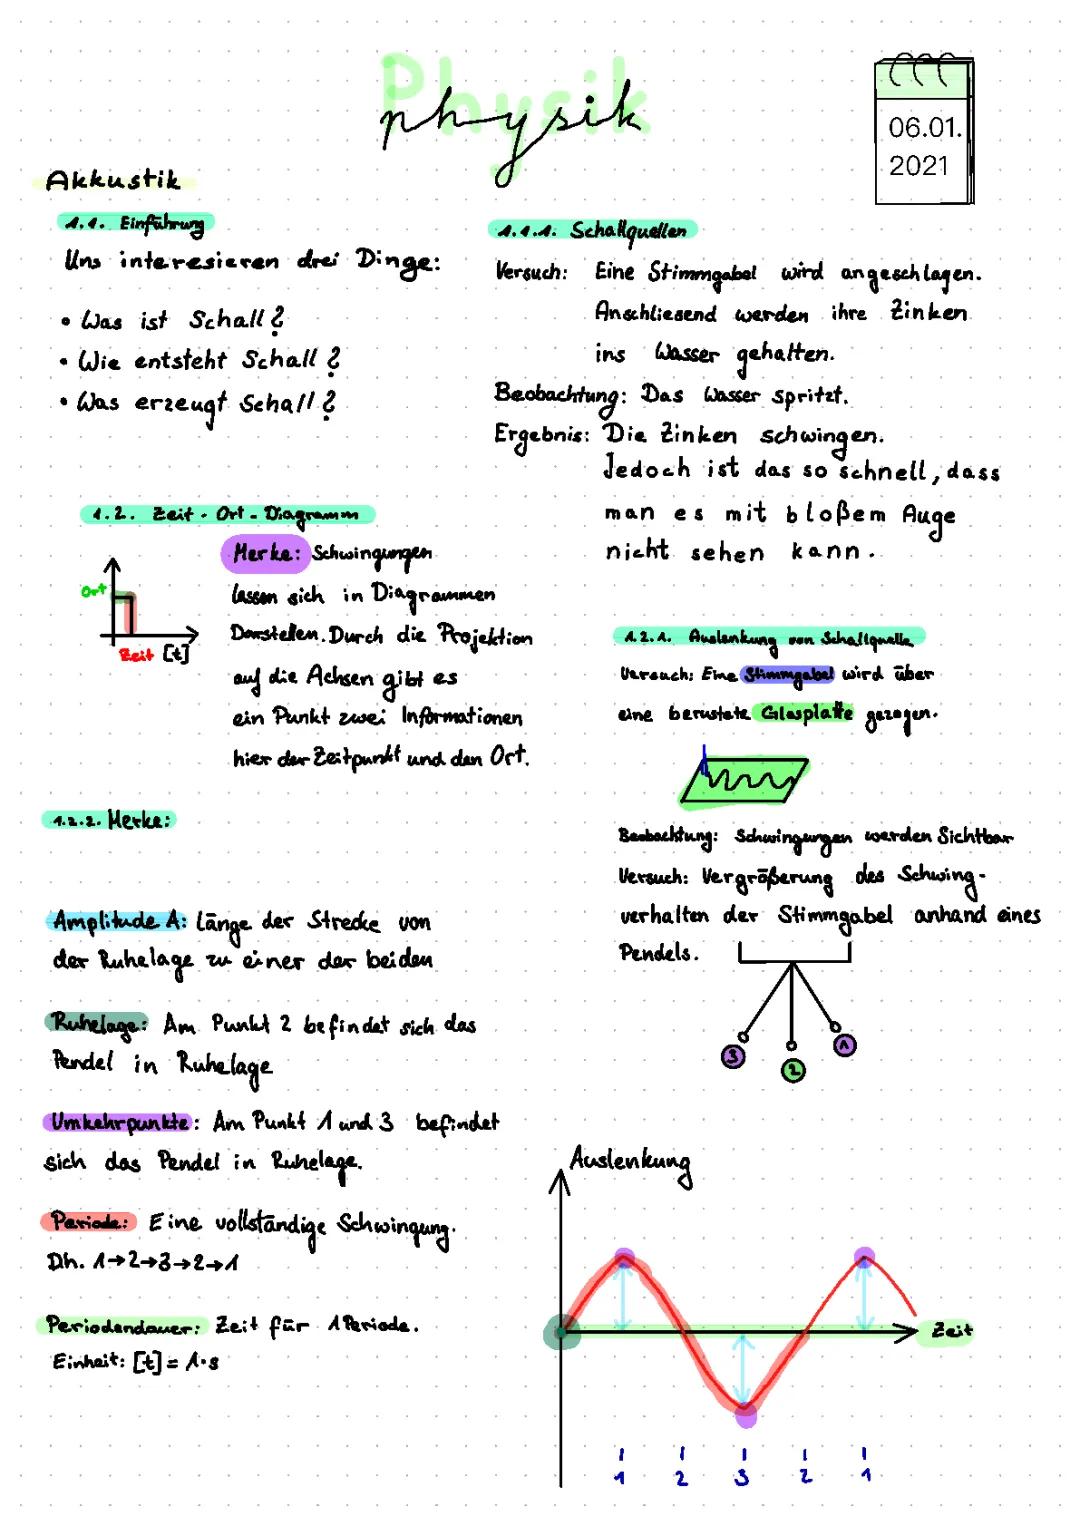 Physik
physik
06.01.
2021
Akkustik
1.1. Einführung
Uns interesieren drei Dinge:
• Was ist Schall?
• Wie entsteht Schall?
• Was erzeugt Schall?
1.1.1. Schallquellen
Versuch: Eine Stimmgabel wird angeschlagen.
Anschliesend werden ihre Zinken
ins Wasser gehalten.
Beobachtung: Das Wasser spritzt.
Ergebnis: Die Zinken schwingen.
Jedoch ist das so schnell, dass
man es mit bloßem Auge
nicht sehen kann.
1.2. Zeit-Ort-Diagramm
Ort
Zeit [t]
Merke: Schwingungen
lassen sich in Diagrammen
Darstellen. Durch die Projektion
auf die Achsen gibt es
ein Punkt zwei Informationen
hier der Zeitpunkt und den Ort.
1.2.1. Auslenkung von Schallquelle
Versuch: Eine Stimmgabel wird über
eine berustete Glasplatte gezogen.
Beobachtung: Schwingungen werden Sichtbar
Versuch: Vergrößerung des Schwing-
verhalten der Stimmgabel anhand eines
Pendels.
3
2
1
1.2.2. Merke:
Amplitude A: Länge der Strecke von
der Ruhelage zu einer der beiden
Ruhelage: Am Punkt 2 befindet sich das
Pendel in Ruhelage
Umkehrpunkte: Am Punkt 1 und 3 befindet
sich das Pendel in Ruhelage.
Periode: Eine vollständige Schwingung.
Dh. 1→2→3→2→1
Periodendauer: Zeit für 1 Periode.
Einheit: [t] = 1·s
Auslenkung
Zeit
1 2 3 2 1